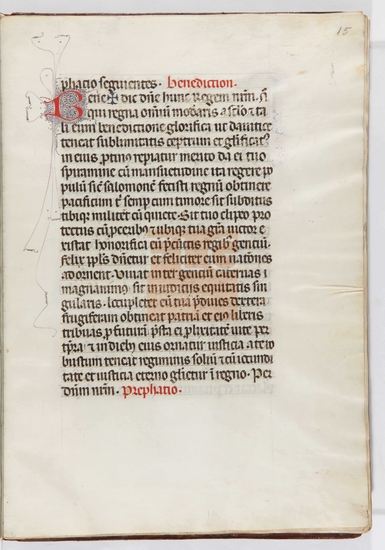 15
phatio sequentes. Benediction.
Bene✠dic dñe hunc Regem nr̃m. q̃
qui regna omniũ moderaris a sc̃lo & ta
li eum benedictione glorifica ut dauitice
teneat sublimitatis ceptrum et glificat᷒
in eius ꝓtino repiatur merito da ei tuo
spiramine cũ mansuetudine ita regere po
pulũ sic̃ salomonẽ fecisti regnũ obtinere
pacificum t̃ semp cum timore sit subditus
tibiqꝫ militet cũ quiete. Sit tuo clipeo pro
tectus cũ ꝓceribꝫ & ubiqꝫ tua gr̃a uictor e
xistat honorifica eũ p̃ cunctis regibꝫ gentiũ.
felix ppl̃s dñetur et feliciter eum nationes
adornent. Uiuat inter gentiũ cateruas i
magnanimꝫ sit in iuditiis equitatis sin
gularis. locupletet eũ tua p̃diues dextera
frugiferam obtineat patriã et eiꝰ liberis
tribuas ꝓfuturã. p̃sta ei ꝓlixitatẽ uite per
tp̃ra & in diebꝫ eius oriatur iusticia a te ro
bustum teneat regiminis soliũ & cũ iocundi
tate et iusticia eterno glietur i regno. Per
dñm nr̃m. Prephatio.